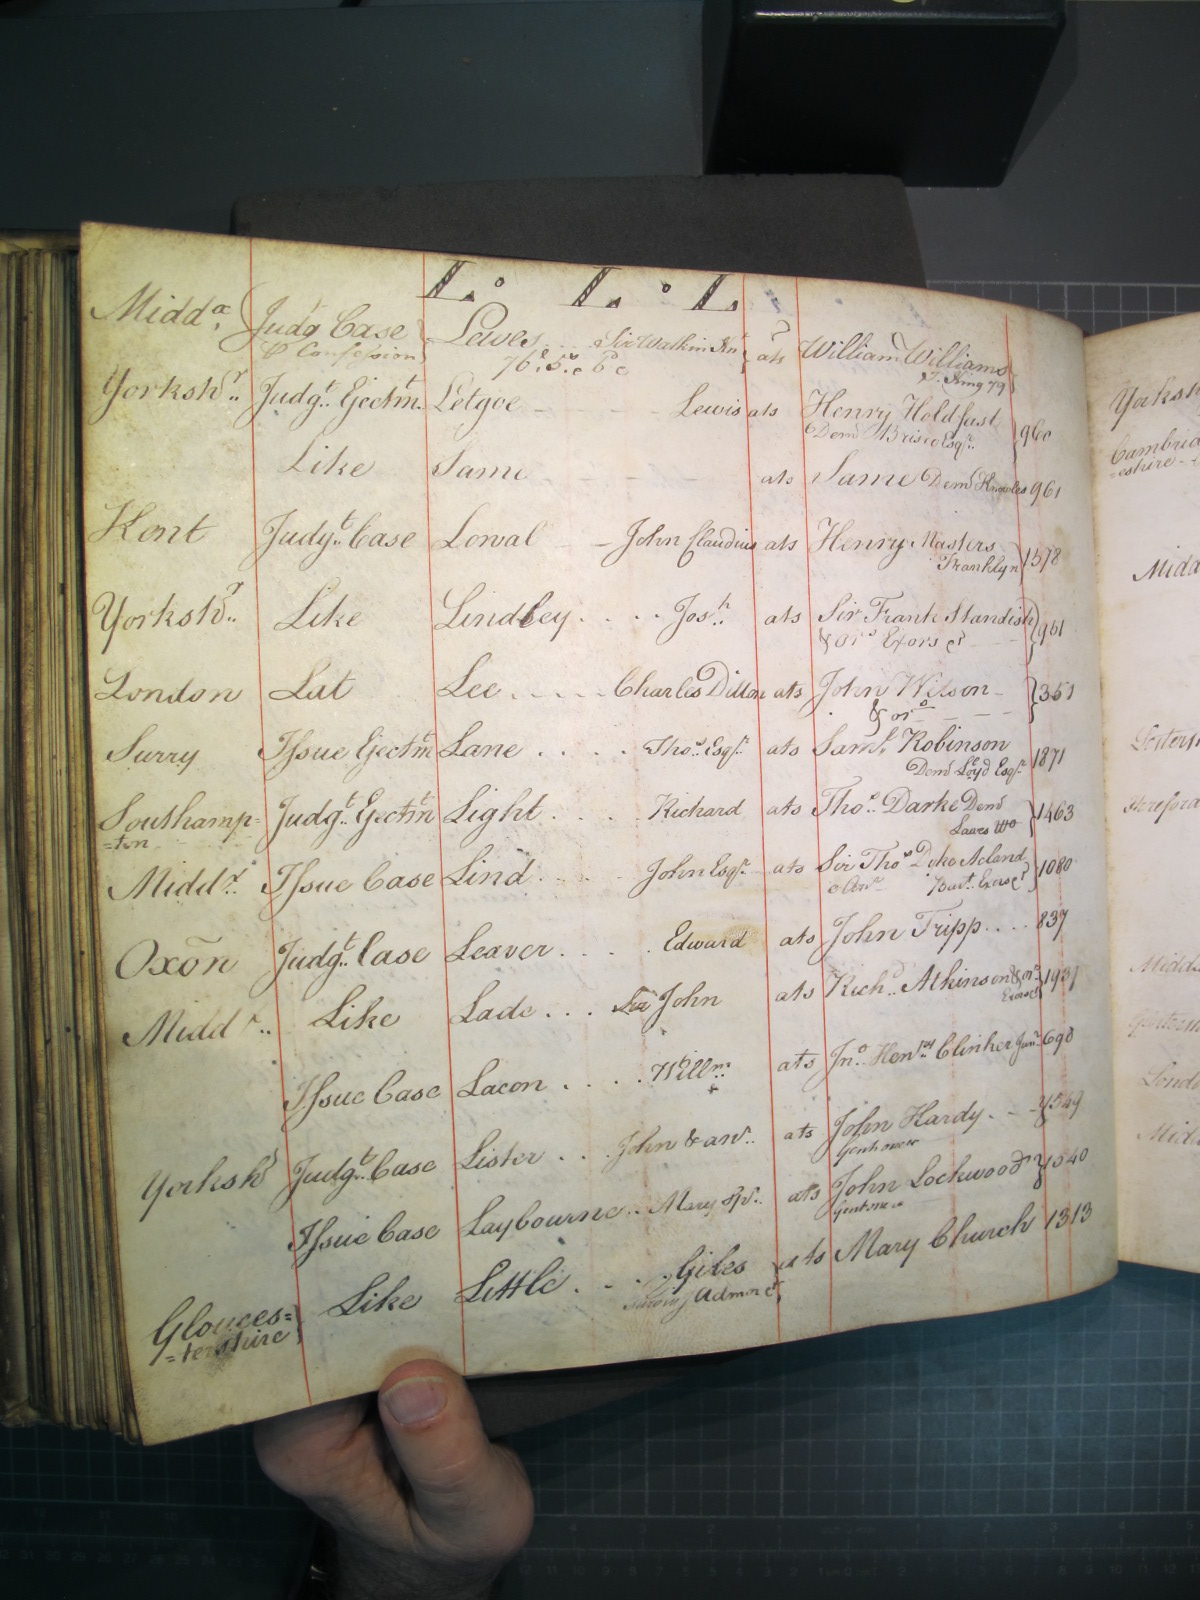 L. L. L.
Midd.x Judg Case Lewes Sir Watkin Knt ats William Williams
& Confession 76. 5. 6 T. King 79
Yorksh.r Judg.t Ejectm.t Letgoe Lewis ats Henry Holdfast
Dem.d Brisco Esq.r 960
Like Same ats Same Dem.d Knowles 961
Kent Judg.t Case Lowal John Claudius ats Henry Masters
Franklyn 1578
Yorksh.r Like Lindley Jos.h ats Sir Frank Standish
& or.s Exors &c 951
London Lat Lee Charles Dillon ats John Wilson
& or.s 351
Surry Issue Ejectm.t Lane Tho.s Esq.r ats Sam.l Robinson
Dem.d Loyd Esq.r 1871
Southamp= Judg.t Ejectm.t Light Richard ats Tho.s Darke Dem.d
=ton Lawes 1463
Midd.x Issue Case Lind John Esq.r ats Sir Tho.s Dyke Acland
Bar.t Exors &c 1080
Oxōn Judg.t Case Leaver Edward ats John Tripp 837
Midd.x Like Lade Sir John ats Rich.d Atkinson & or.s
Exors &c 1931
Issue Case Lacon Will.m ats Jn.o Hen.ry Clinker Jun.r 698
Yorksh.r Judg.t Case Lister John & an.r ats John Hardy
Gentleman 549
Issue Case Laybourne Mary ats John Lockwood
gentleman 1540
Glouces= Like Little Giles ats Mary Church 1313
=tershire surviving Admor &c
Yorksh
Cambrid
=eshire
Midd
Leicesters
Hereford
Midd
London
Midd